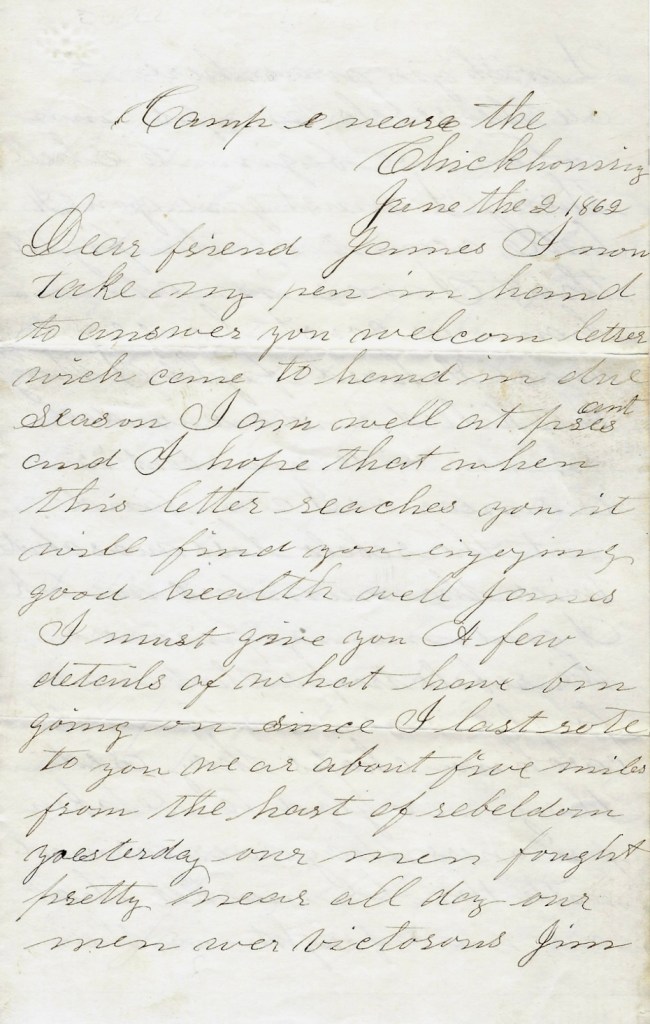 Camp e neare the
Chickhominy
June the 2 1862
Dear friend James I now
take my pen in hand
to answer you welcom letter
wich came to hand in due
season I am well at pres ant
and I hope that when
this letter reaches you it
will find you enjoying
good health well James
I must give you A few
details of what have bin
going on since I last rote
to you we ar about five miles
from the hart of rebeldom
yesterday our men fought
pretty near all day our
men wer victorous Jim